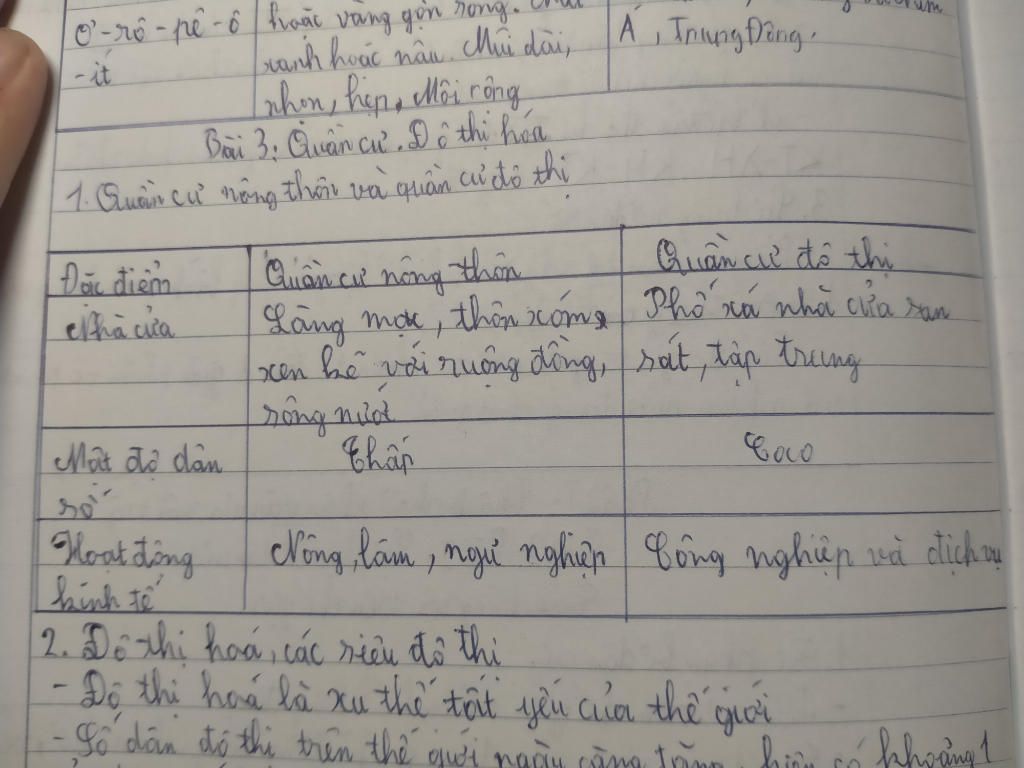 Ơ-rô-pê-ô hoặc vàng gợn sóng.
-ít xanh hoặc nâu. Mũi dài, Á, Trung Đông.
nhọn, hẹp, Môi rộng
Bài 3: Quần cư. Đô thị hóa
1. Quần cư nông thôn và quần cư đô thị
Đặc điểm Quần cư nông thôn Quần cư đô thị
Nhà cửa Làng mạc, thôn xóm Phố xá nhà cửa san
xen kẽ với ruộng đồng, sát, tập trung
sông nước
Mật độ dân Thấp Cao
số
Hoạt động Nông, lâm, ngư nghiệp Công nghiệp và dịch vụ
kinh tế
2. Đô thị hoá, các siêu đô thị
- Đô thị hoá là xu thế tất yếu của thế giới
- Số dân đô thị trên thế giới ngày càng tăng, hiện có khoảng 1